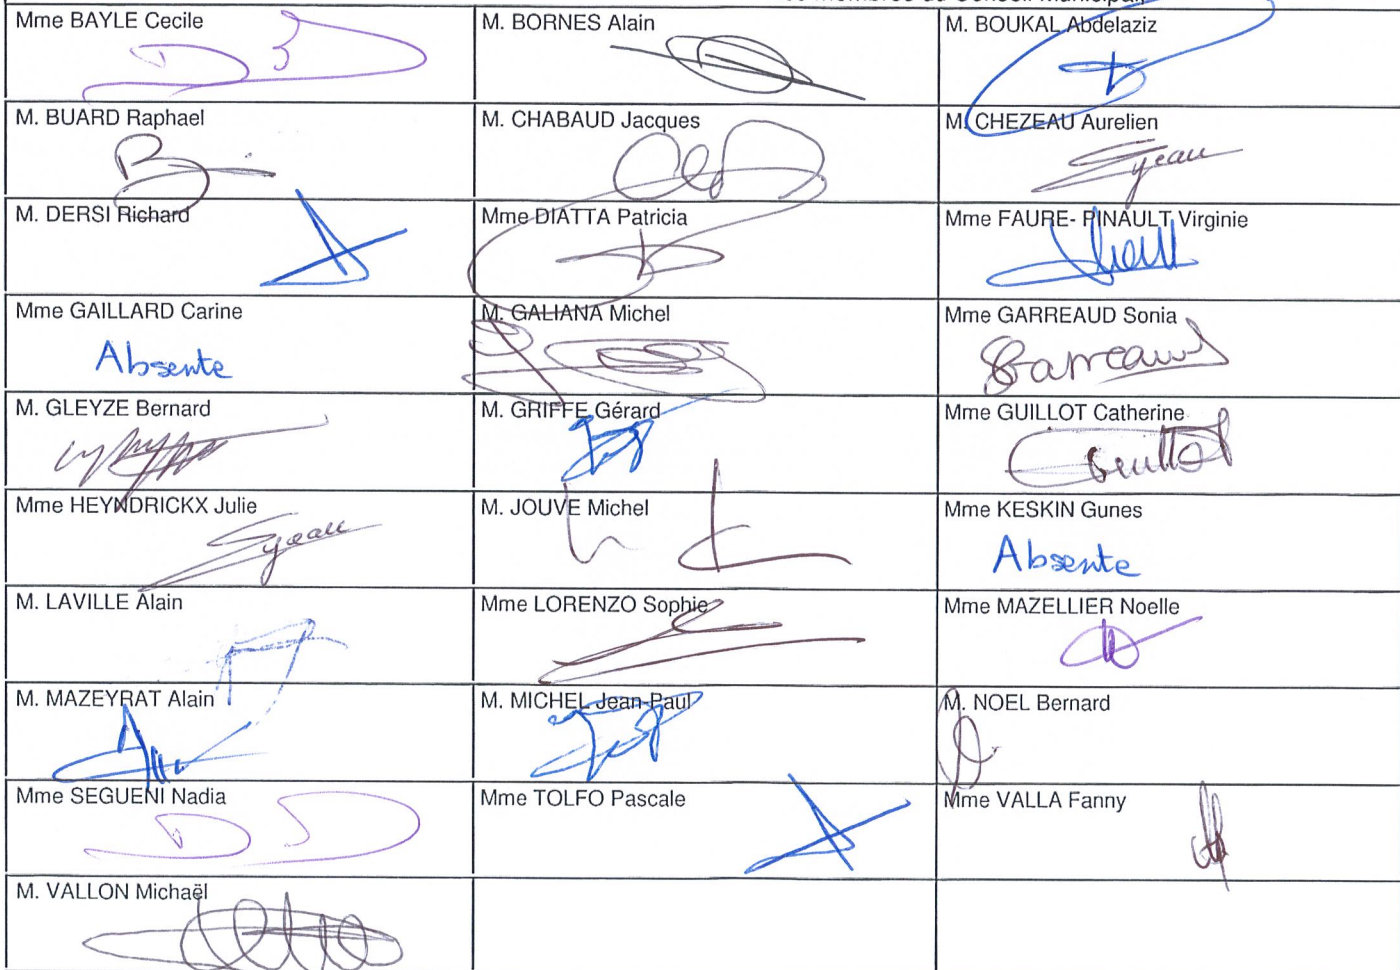 Mme BAYLE Cecile
M. BORNES Alain
M. BOUKAL Abdelaziz
M. BUARD Raphael
M. CHABAUD Jacques
M. CHEZEAU Aurelien
M. DERSI Richard
Mme DIATTA Patricia
Mme FAURE- PINAULT Virginie
Mme GAILLARD Carine
Absente
M. GALIANA Michel
Mme GARREAUD Sonia
Garreaud
M. GLEYZE Bernard
M. GRIFFE Gérard
Mme GUILLOT Catherine
Mme HEYNDRICKX Julie
M. JOUVE Michel
Mme KESKIN Gunes
Absente
M. LAVILLE Alain
Mme LORENZO Sophie
Mme MAZELLIER Noelle
M. MAZEYRAT Alain
M. MICHEL Jean-Paul
M. NOEL Bernard
Mme SEGUENI Nadia
Mme TOLFO Pascale
Mme VALLA Fanny
M. VALLON Michaël